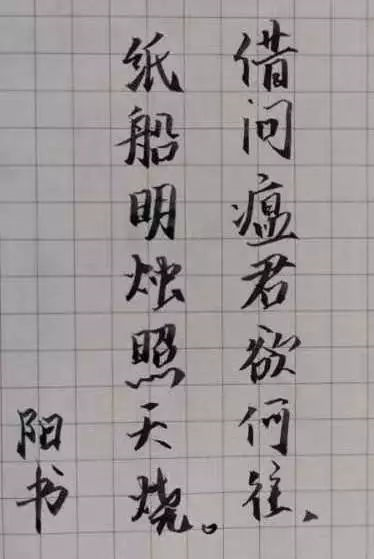 借问瘟君欲何往、
纸船明烛照天烧。
阳书